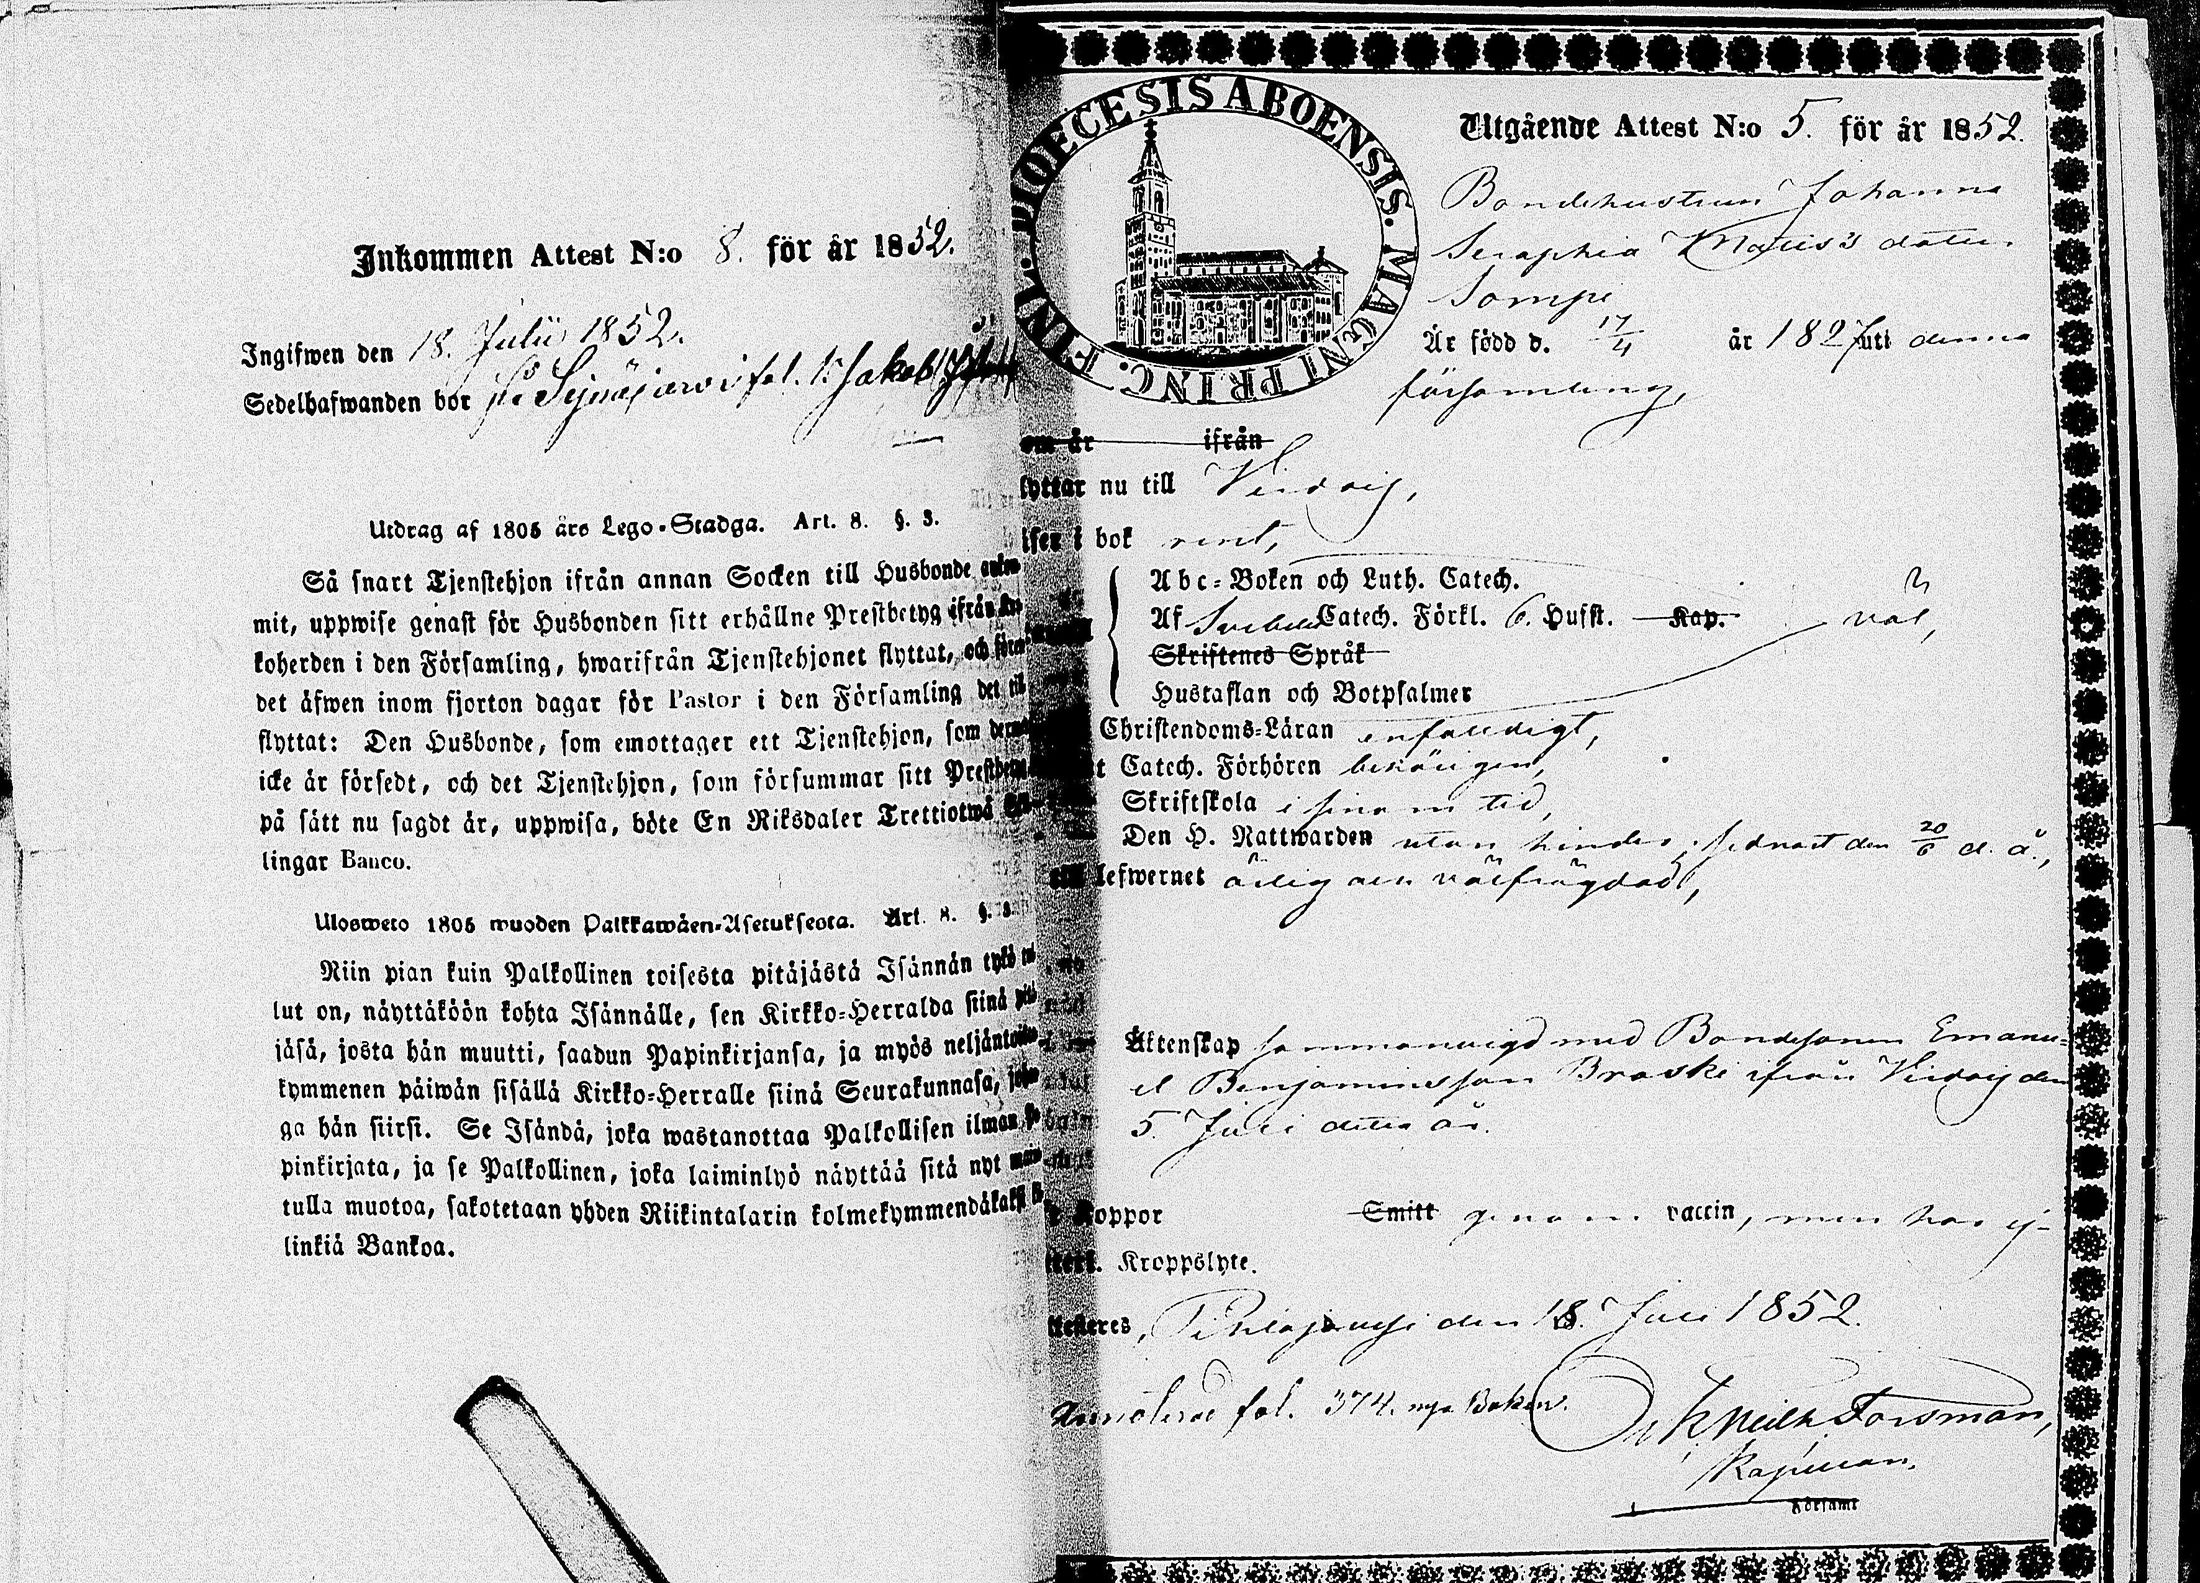 Inkommen Attest N:o 8. för år 1852.
Ingifwen den 18. Julii 1852.
Sedelhafwanden bor på Sejnäjärwi fol. Jakob
Utdrag af 1805 års Lego-Stadga. Art. 8. §. 3.
Så snart Tjenstehjon ifrån annan Socken till Husbonde
mit, uppwise genast för Husbonden sitt erhållne Prestbetyg ifrån
koherden i den Församling, hwarifrån Tjenstehjonet flyttat, och
det äfwen inom fjorton dagar för Pastor i den Församling det till
flyttat: Den Husbonde, som emottager ett Tjenstehjon, som
icke är försedt, och det Tjenstehjon, som försummar sitt
på sätt nu sagdt är, uppwisa, böte En Riksdaler Trettiotwå
lingar Banco.
Ulosweto 1805 wuoden Palkkawäen-Asetuksesta. Art. 8. §. 3.
Niin pian kuin Palkollinen toisesta pitäjästä Isännän tykö
lut on, näyttäköön kohta Isännälle, sen Kirkko-Herralda siinä
jäsä, josta hän muutti, saadun Papinkirjansa, ja myös
kymmenen päiwän sisällä Kirkko-Herralle siinä Seurakunnasa,
ga hän siirsi. Se Isändä, joka wastanottaa Palkollisen ilman
pinkirjata, ja se Palkollinen, joka laiminlyö näyttää sitä nyt
tulla muotoa, sakotetaan yhden Riikintalarin kolmekymmendäkaksi
linkiä Bankoa.
DIOECESIS ABOENSIS. MAGNI PRINC. FINL.
Utgående Attest N:o 5. för år 1852.
Bondehustrun Johanna
Seraphia Matts's dotter
Sompi
Är född d. 17/4 år 1827 uti denna
församling,
om år ifrån
lyttar nu till Virdois,
iser i bok rent,
Abc-Boken och Luth. Catech.
Af Svebelii Catech. Förkl. 6. Husst. Kap. väl,
Skriftenes Språk
Hustaflan och Botpsalmer
Christendoms-Läran enfaldigt,
Catech. Förhören behörigen,
Skriftskola i sinom tid,
Den H. Nattwarden utan hinder, sednast den 20/6 d. å.,
lefwernet ärlig och välfrägdad,
Äktenskap sammanvigd med Bondesonen Emanu-
el Benjaminsson Braski ifrån Virdois den
5. Juli detta år.
Koppor Smitt genom vaccin, men har ej
Kroppslyte.
Pihlajavesi den 18. Juli 1852.
Annoterad fol. 374. nya Boken.
Forsman,
Kapellan.
Församl